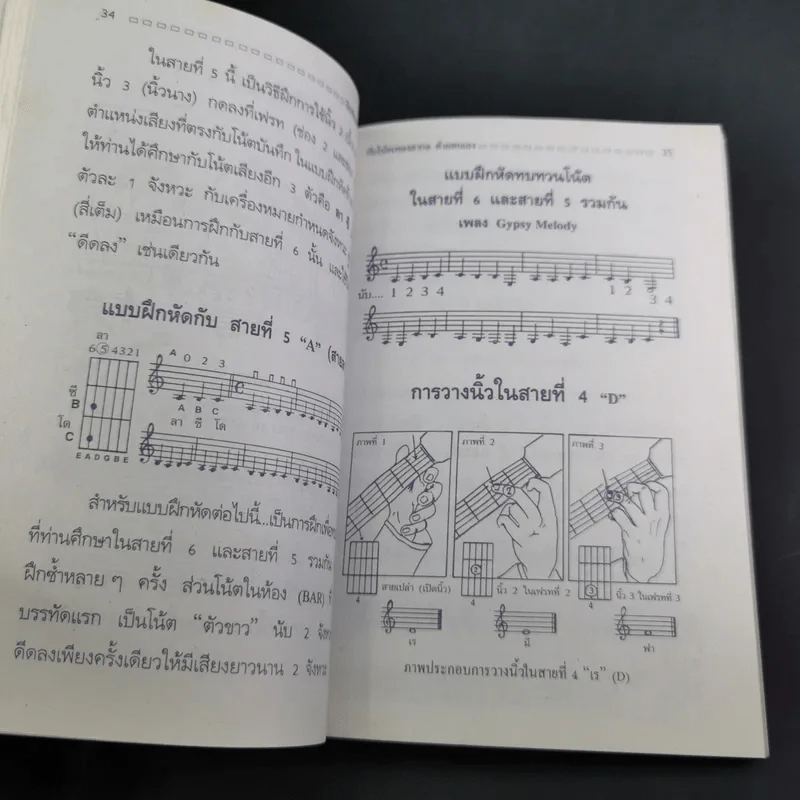 34
ในสายที่ 5 นี้ เป็นวิธีฝึกการใช้นิ้ว
นิ้ว 3 (นิ้วนาง) กดลงที่เฟรท (ช่อง 2
ตำแหน่งเสียงที่ตรงกับโน้ตบันทึก ในแบบฝึกหัด
ให้ท่านได้ศึกษากับโน้ตเสียงอีก 3 ตัวคือ ลา
ตัวละ 1 จังหวะ กับเครื่องหมายกำหนดจังหวะ
(สี่เต็ม) เหมือนการฝึกกับสายที่ 6 นั้น
“ดีดลง” เช่นเดียวกัน
แบบฝึกหัดกับ สายที่ 5 “A”
ลา
6 5 4 3 2 1
ซี
B
โด
C
E A D G B E
A 0 2 3
A B C
ลา ซี โด
สำหรับแบบฝึกหัดต่อไปนี้...เป็นการฝึก
ที่ท่านศึกษาในสายที่ 6 และสายที่ 5 รวมกัน
ฝึกซ้ำหลาย ๆ ครั้ง ส่วนโน้ตในห้อง (BAR)
บรรทัดแรก เป็นโน้ต “ตัวขาว” นับ 2
ดีดลงเพียงครั้งเดียวให้มีเสียงยาวนาน 2 จังหวะ
35
แบบฝึกหัดทบทวนโน้ต
ในสายที่ 6 และสายที่ 5 รวมกัน
เพลง Gypsy Melody
นับ.... 1 2 3 4 1 2 3 4
การวางนิ้วในสายที่ 4 “D”
ภาพที่ 1 ภาพที่ 2 ภาพที่ 3
4 สายเปล่า (เปิดนิ้ว) 2 4 นิ้ว 2 ในเฟรทที่ 2 3 4 นิ้ว 3 ในเฟรทที่ 3
เร มี ฟา
ภาพประกอบการวางนิ้วในสายที่ 4 “เร” (D)